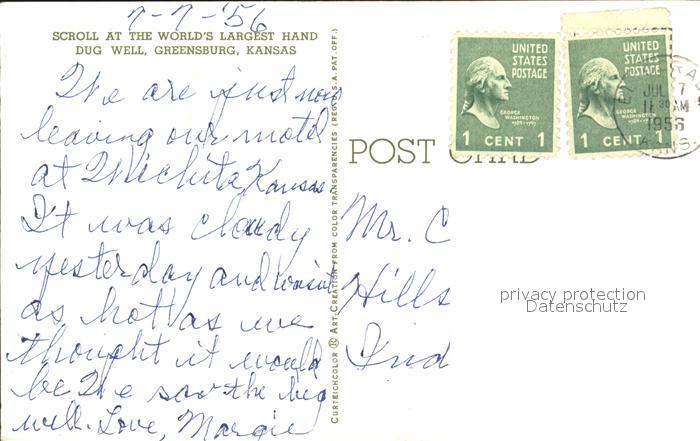 7-7-'56
SCROLL AT THE WORLD'S LARGEST HAND
DUG WELL, GREENSBURG, KANSAS
We are just now
leaving our motel
at Wichita Kansas
It was cloudy
yesterday and wasn't
as hot as we
thought it would
be We saw the big
well. Love, Margie
CURTEICHCOLOR ® ART CREATION FROM COLOR TRANSPARENCIES (REG. U.S.A. PAT. OFF.)
POST CARD
UNITED
STATES
POSTAGE
GEORGE
WASHINGTON
1789-1797
1 CENT 1
UNITED
STATES
POSTAGE
GEORGE
WASHINGTON
1 CENT 1
JUL 7
11 30 AM
1956
Mr. C
Hills
Ind
privacy protection
Datenschutz